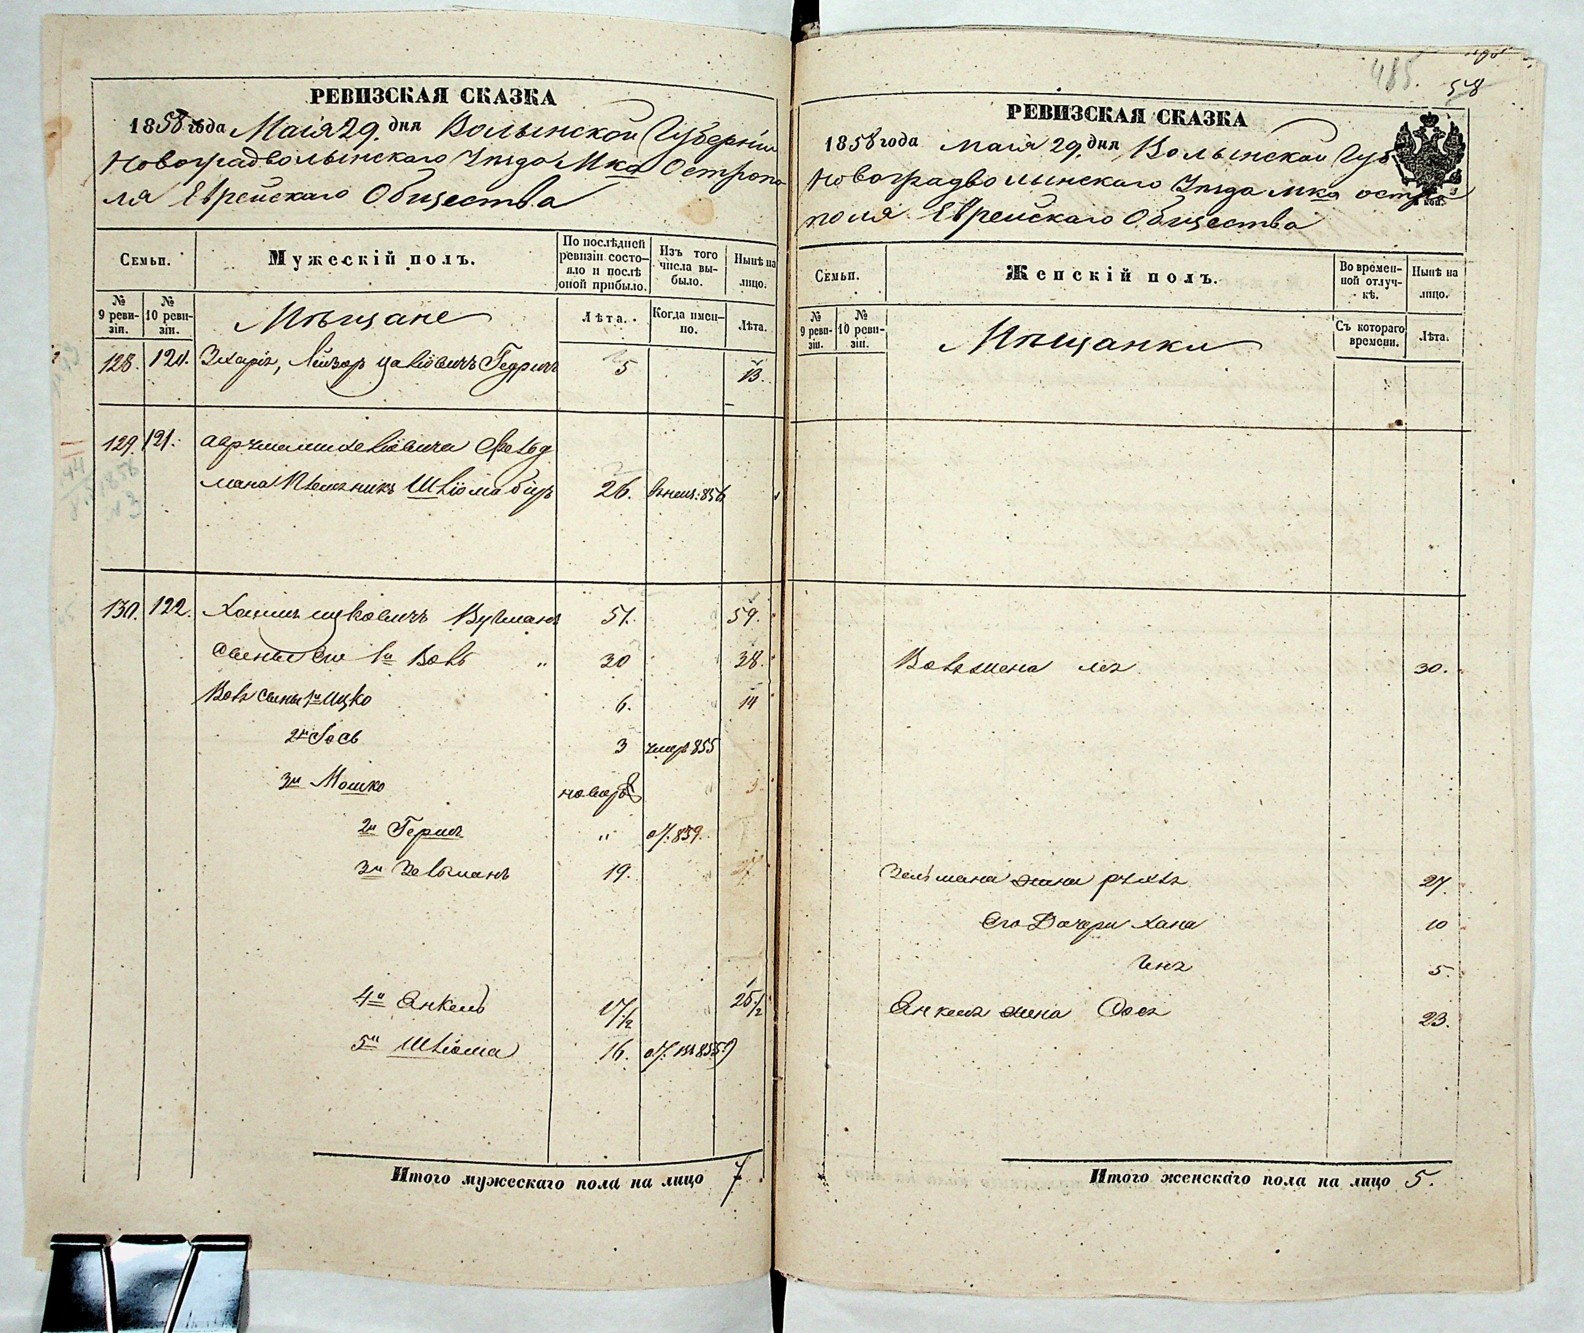 РЕВИЗСКАЯ СКАЗКА
1858 года Маія 29 дня Волынской Губерніи
Новоградволынскаго Уезда Мка Остропо
ля Еврейскаго Общества
Семьи.
Мужескій полъ.
По послѣдней ревизіи состояло и послѣ оной прибыло.
Изъ того числа выбыло.
Нынѣ на лицо.
№ 9 ревизіи.
№ 10 ревизіи.
Мѣщане
Лѣта.
Когда именно.
Лѣта.
128. 120. Лейзоръ 5 13.
129. 121.
Шліома 26. 856
130. 122. Хаимъ Ицковичъ Вугманъ 51. 59.
Сыновья 1й Вовъ „ 30 38.
Вовъ сыны 1й Ицко 6. 14
2й Іось 3 умеръ 855
3й Мошко новор. 3
2й Гершъ „ 859.
3й Зельманъ 19. 27
4й Янкель 17 1/2 25 1/2
5й Шліома 16. 855
Итого мужескаго пола на лицо 7
485. 58
РЕВИЗСКАЯ СКАЗКА
1858 года Маія 29 дня Волынской Губ
Новоградволынскаго Уезда Мка Остро
поля Еврейскаго Общества
Семьи.
Женскій полъ.
Во временной отлучкѣ.
Нынѣ на лицо.
№ 9 ревизіи.
№ 10 ревизіи.
Мѣщанки
Съ котораго времени.
Лѣта.
Вова жена Лея 30.
Зельмана жена Рухля 27.
Его Дочери Хана 10
5.
Янкеля жена 23.
Итого женскаго пола на лицо 5.